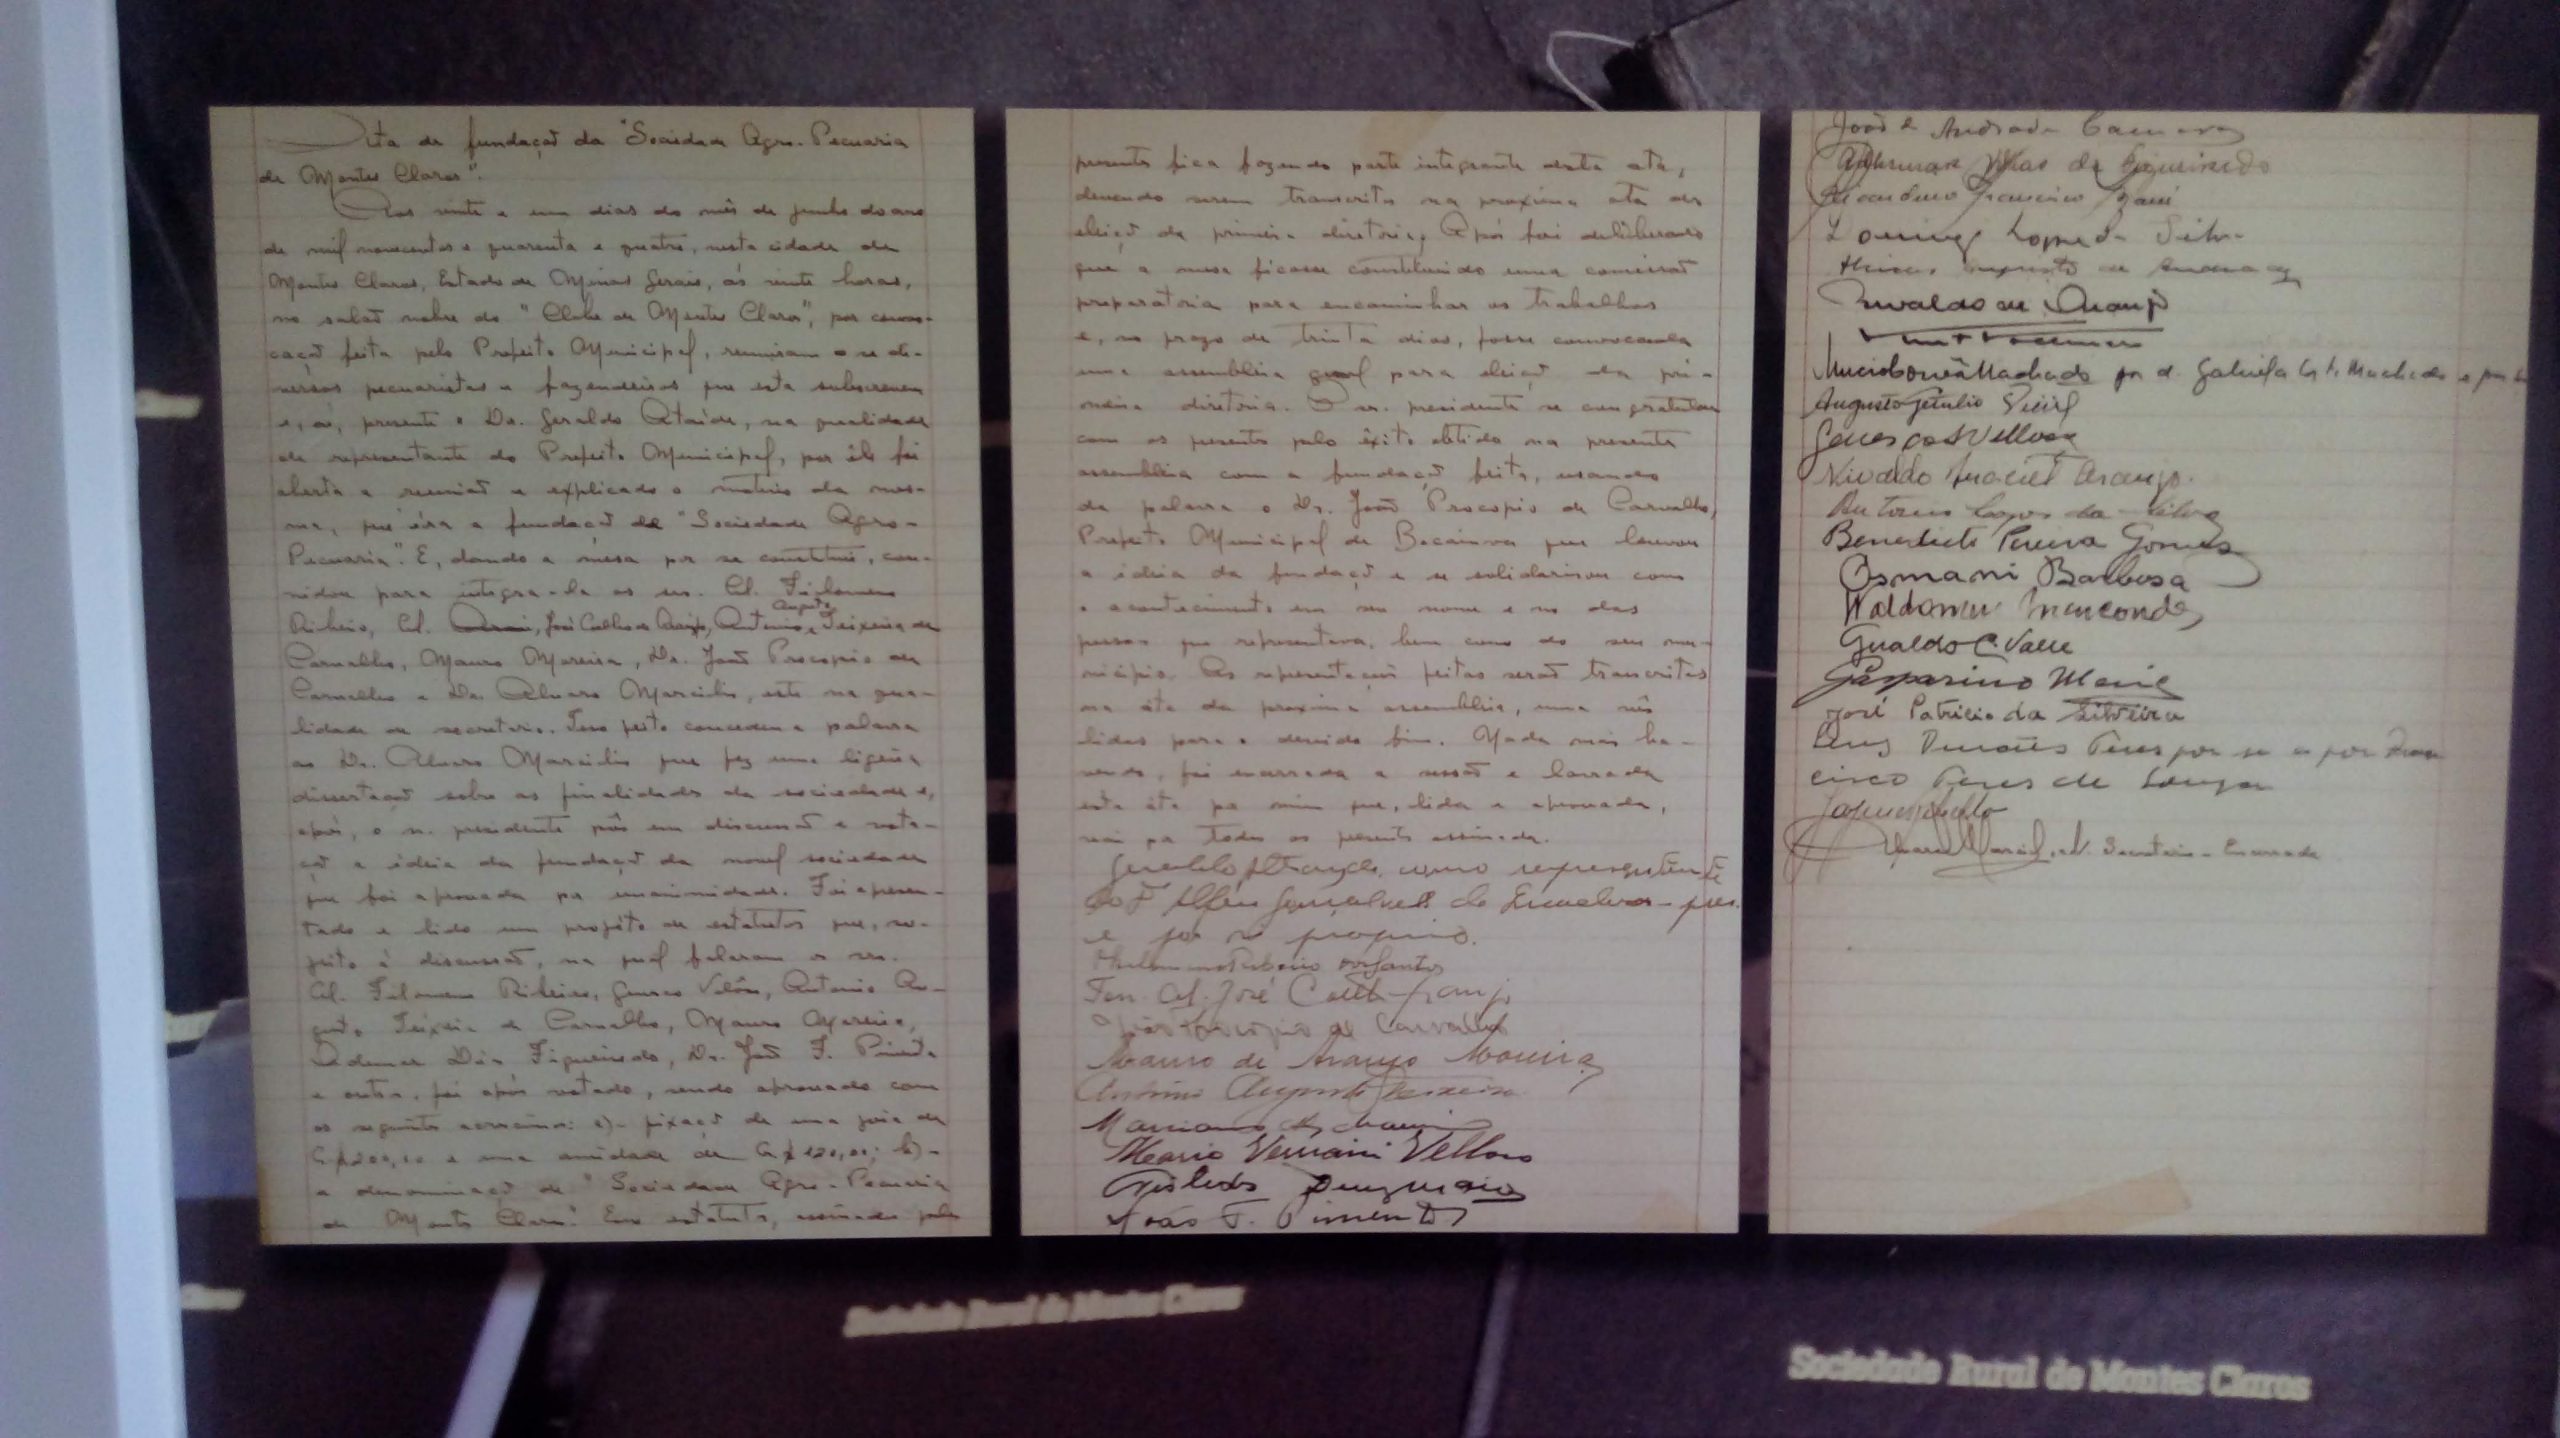 Ata de fundação da "Sociedade Agro-Pecuaria
de Montes Claros".
Aos vinte e um dias do mês de junho do ano
de mil novecentos e quarenta e quatro, nesta cidade de
Montes Claros, Estado de Minas Gerais, ás vinte horas,
no salão nobre do "Clube de Montes Claros", por convo-
cação feita pelo Prefeito Municipal, reuniram-se di-
versos pecuaristas e fazendeiros que esta subscrevem
e, aí, presente o Dr. Geraldo Ataíde, na qualidade
de representante do Prefeito Municipal, por êle foi
aberta a reunião e explicado o motivo da mes-
ma, que éra a fundação de "Sociedade Agro-
Pecuaria". E, dando a mesa por se constituir, con-
vidou para integra-la os srs. Cel. Filomeno
Ribeiro, Cel. José Coelho de Araujo, Antonio Augusto Teixeira de
Carvalho, Mauro Moreira, Dr. João Procopio de
Carvalho e Dr. Alvaro Marcilio, este na qua-
lidade de secretario. Isso feito concedeu a palavra
ao Dr. Alvaro Marcilio que fez uma ligeira
dissertação sobre as finalidades da sociedade e,
após, o sr. presidente pôs em discussão e vota-
ção a ideia da fundação da novel sociedade
que foi aprovada por unanimidade. Foi apresen-
tado e lido um projéto de estatutos que, su-
jeito á discussão, na qual falaram os srs.
Cel. Filomeno Ribeiro, Genesco Velôso, Antonio Au-
gusto Teixeira de Carvalho, Mauro Moreira,
Ademar Dias Figueiredo, Dr. João F. Pimenta
e outros, foi após votado, sendo aprovado com
os seguintes acrescimos: a)- fixação de uma joia de
Cr$200,00 e uma anuidade de Cr$120,00; b)-
a denominação de "Sociedade Agro-Pecuaria
de Montes Claros". Esses estatutos, assinados pelos
presentes fica fazendo parte integrante desta ata,
devendo serem transcritos na proxima ata de
eleição da primeira diretoria. Após foi deliberado
que a mesa ficasse constituindo uma comissão
preparatoria para encaminhar os trabalhos
e, no prazo de trinta dias, fosse convocada
uma assembléia geral para eleição da pri-
meira diretoria. O sr. presidente se congratulou
com os presentes pelo êxito obtido na presente
assembléia com a fundação feita, usando
da palavra o Dr. João Procopio de Carvalho,
Prefeito Municipal de Bocaiuva que louvou
a ideia da fundação e se solidarisou com
o acontecimento em seu nome e no das
pessoas que representava, bem como do seu mu-
nicipio. As representações feitas serão transcritas
na áta da proxima assembléia, uma vês
lidas para o devido fim. Nada mais ha-
vendo, foi encerrada a sessão e lavrada
esta áta por mim que, lida e aprovada,
vai por todos os presentes assinada.
Geraldo Athayde, como representante
do Alfeu Gonçalves de
e por si proprio.
Ribeiro dos Santos
Ten. Cel. José Coelho Araujo
João Procopio de Carvalho
Mauro de Araujo Moreira
Antonio Augusto Teixeira
Mario Versiani Velloso
João F. Pimenta
João de Andrade Camara
Dias de Figueiredo
Francisco
Lopes da Silva
Augusto de Andrade
de Araujo
Mucio Correa Machado por d. Gabriela Machado e por
Augusto Getulio Vieira
Genesco Velloso
Nivaldo Maciel Araujo.
Antonio Lopes da Silva
Benedicto Pereira Gomes
Osmani Barbosa
Waldomiro Marcondes
Gualdo C. Valle
Gasparino Maia
José Patricio da Silveira
Peres por se e por Fran
cisco Peres de Souza
Alvaro Marcilio. Secretario
Sociedade Rural de Montes Claros
Sociedade Rural de Montes Claros